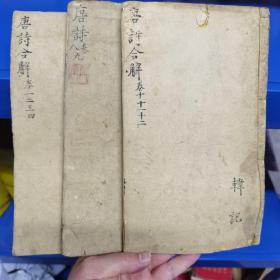 唐詩合解卷一二三四
唐詩卷
八九
唐詩合解卷十十一十二
韓記